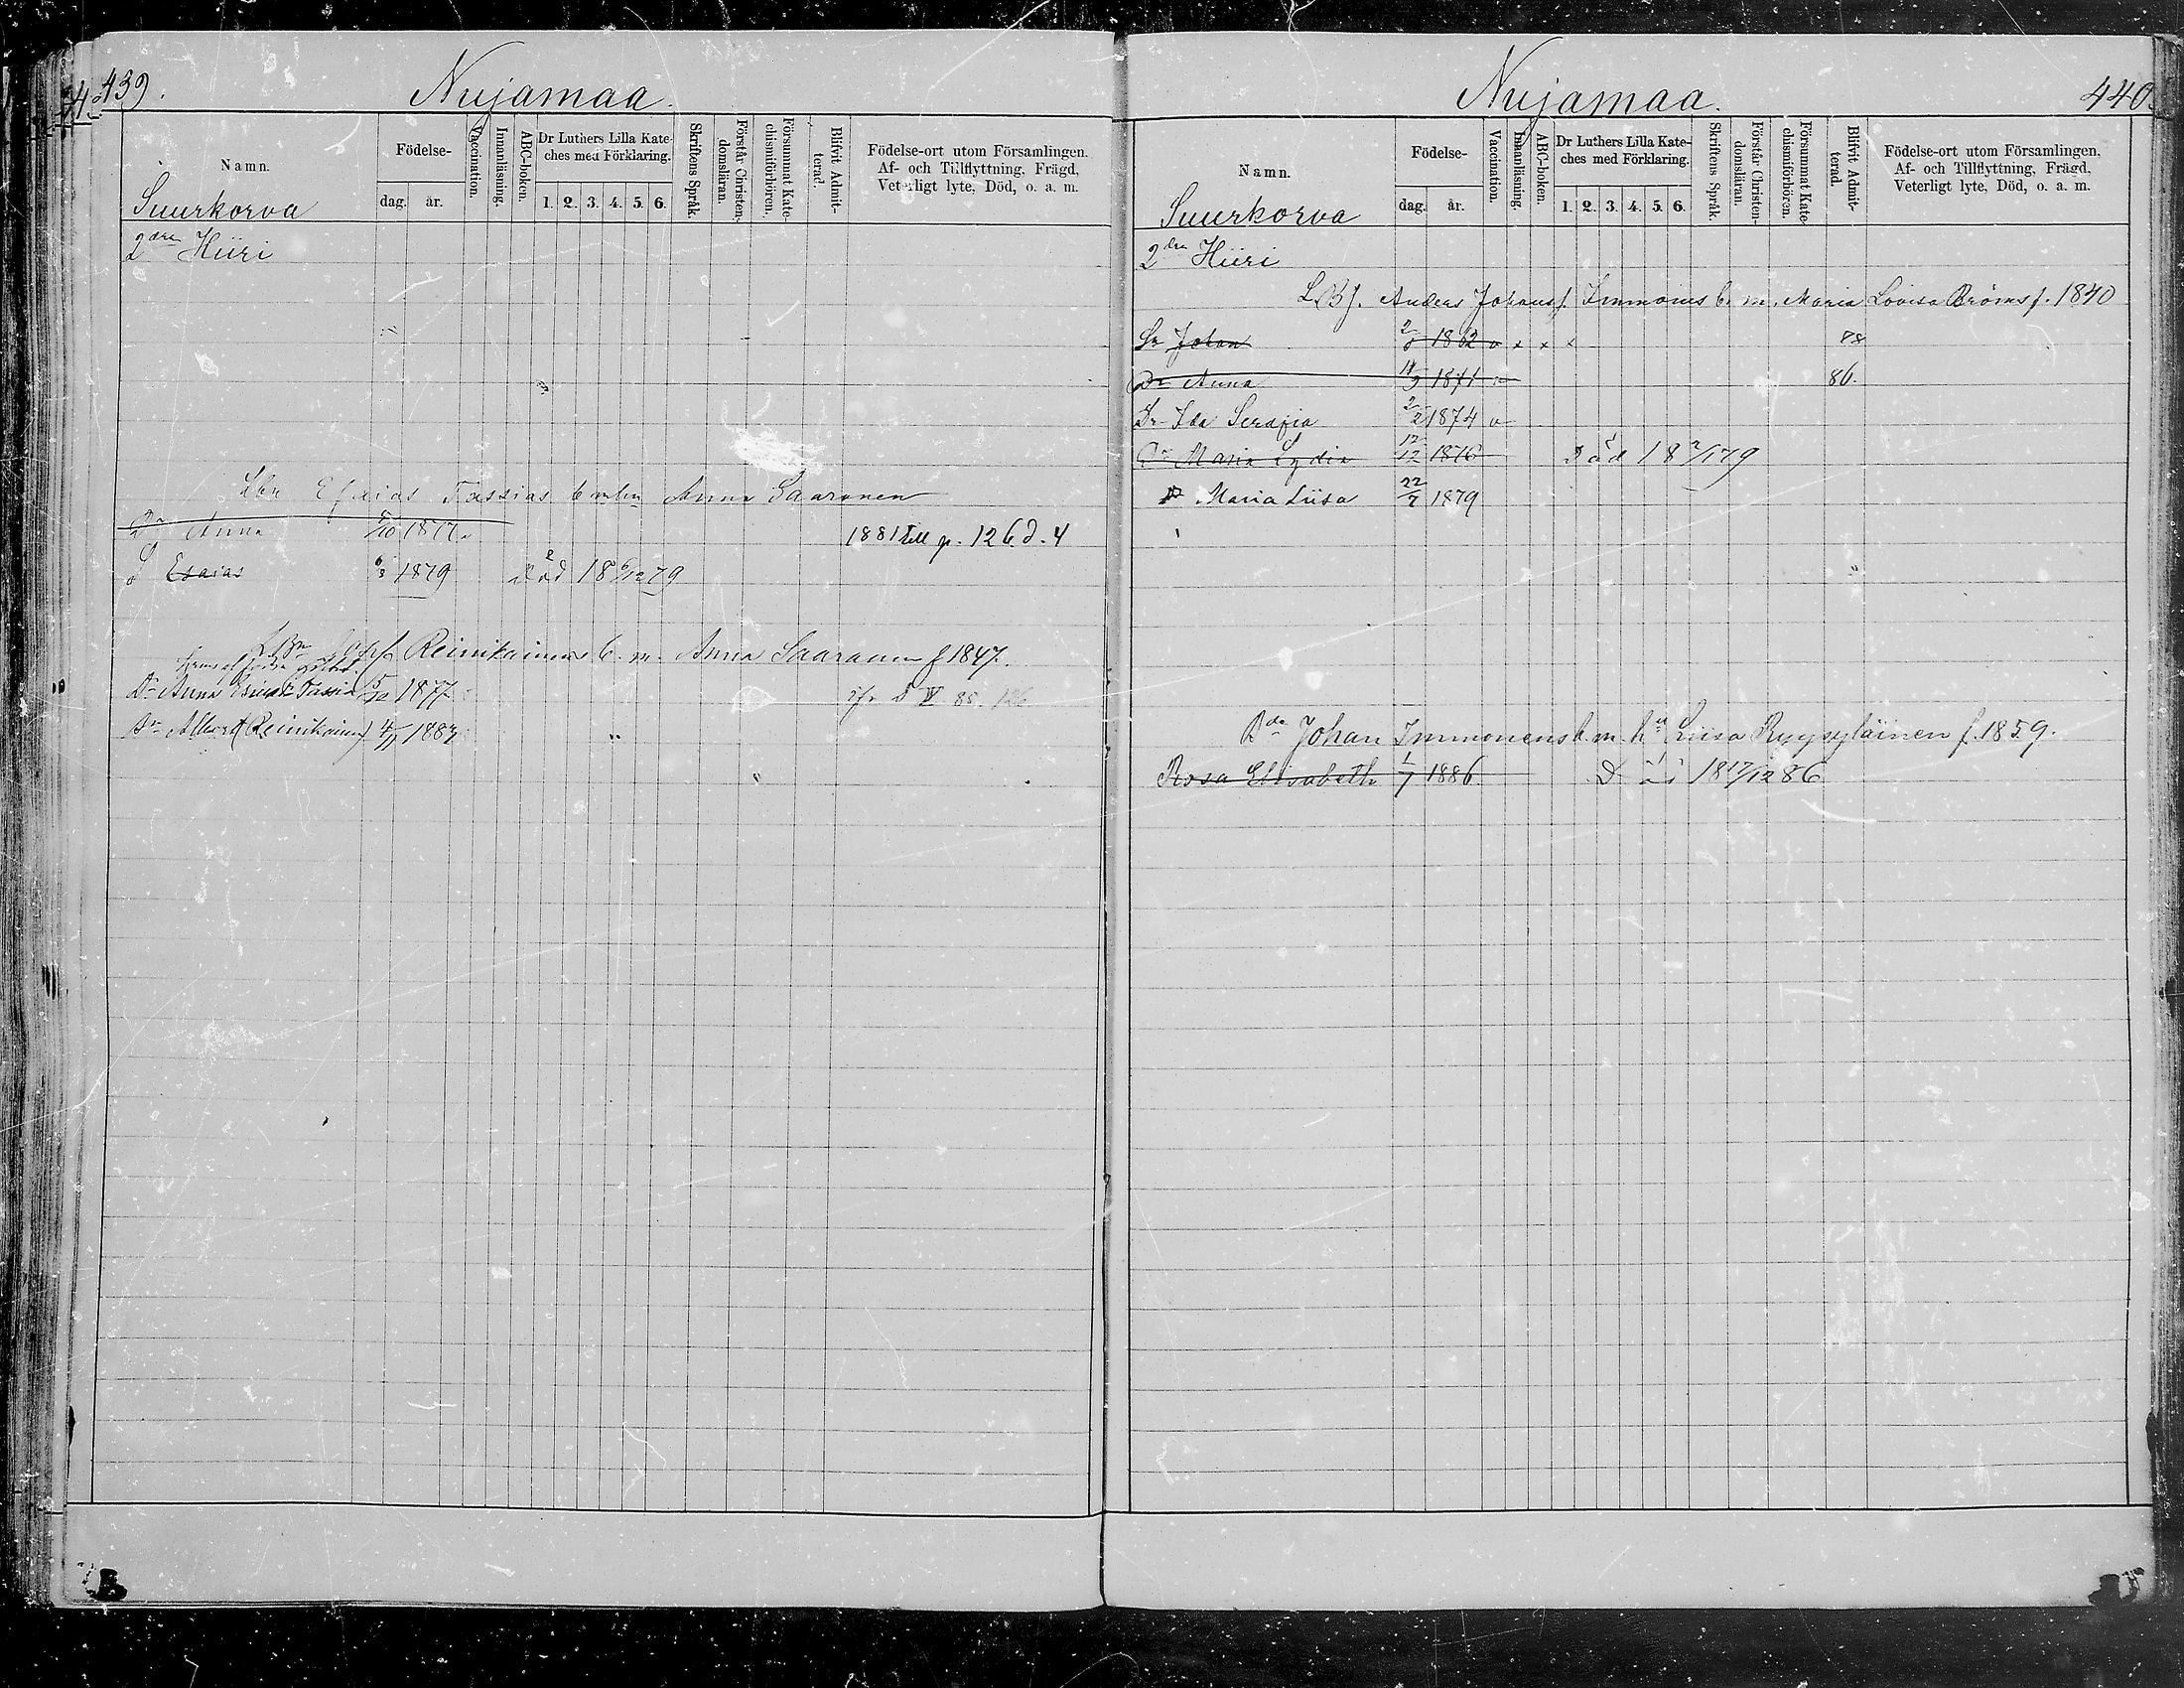 439.
Nuijamaa.
Namn.
Födelse-
dag. år.
Vaccination.
Innanläsning.
ABC-boken.
Dr Luthers Lilla Kate-
ches med Förklaring.
1. 2. 3. 4. 5. 6.
Skriftens Språk.
Förstår Christen-
domsläran.
Försummat Kate-
chismiförhören.
Blifvit Admit-
terad.
Födelse-ort utom Församlingen.
Af- och Tillflyttning, Frägd,
Veterligt lyte, Död, o. a. m.
Suurkorva
2dra Hiiri
Lbn Esaias Tassias b m hu Anna Saaranen
Dr Anna 5/10 1877. 1881 till p. 126 d. 4
S Esaias 6/3 1879 Död 18 6/12 79
Reinikainens b. m. Anna Saaranen f 1847.
Dr Anna Esaiasdr Tassia 5/10 1877.
Sn Albert (Reinikainen) 4/11 1887
440.
Nuijamaa.
Namn.
Födelse-
dag. år.
Vaccination.
Innanläsning.
ABC-boken.
Dr Luthers Lilla Kate-
ches med Förklaring.
1. 2. 3. 4. 5. 6.
Skriftens Språk.
Förstår Christen-
domsläran.
Försummat Kate-
chismiförhören.
Blifvit Admit-
terad.
Födelse-ort utom Församlingen,
Af- och Tillflyttning, Frägd,
Veterligt lyte, Död, o. a. m.
Suurkorva
2dra Hiiri
Anders Johansf. Immoins b. m. Maria Lovisa Bröms f. 1840
Sn Johan 1862 v x x x 78
Dr Anna 1871 v 86.
Dr Ida Serafia 2/2 1874 v
Dr Maria Lydia 12/12 1876 Död 18 2/1 79
Dr Maria Liisa 22/7 1879
Bda Johan Immonens b. m. hu Liisa Ryysyläinen f. 1859.
Rosa Elisabeth 1/7 1886 Död 18 17/12 86